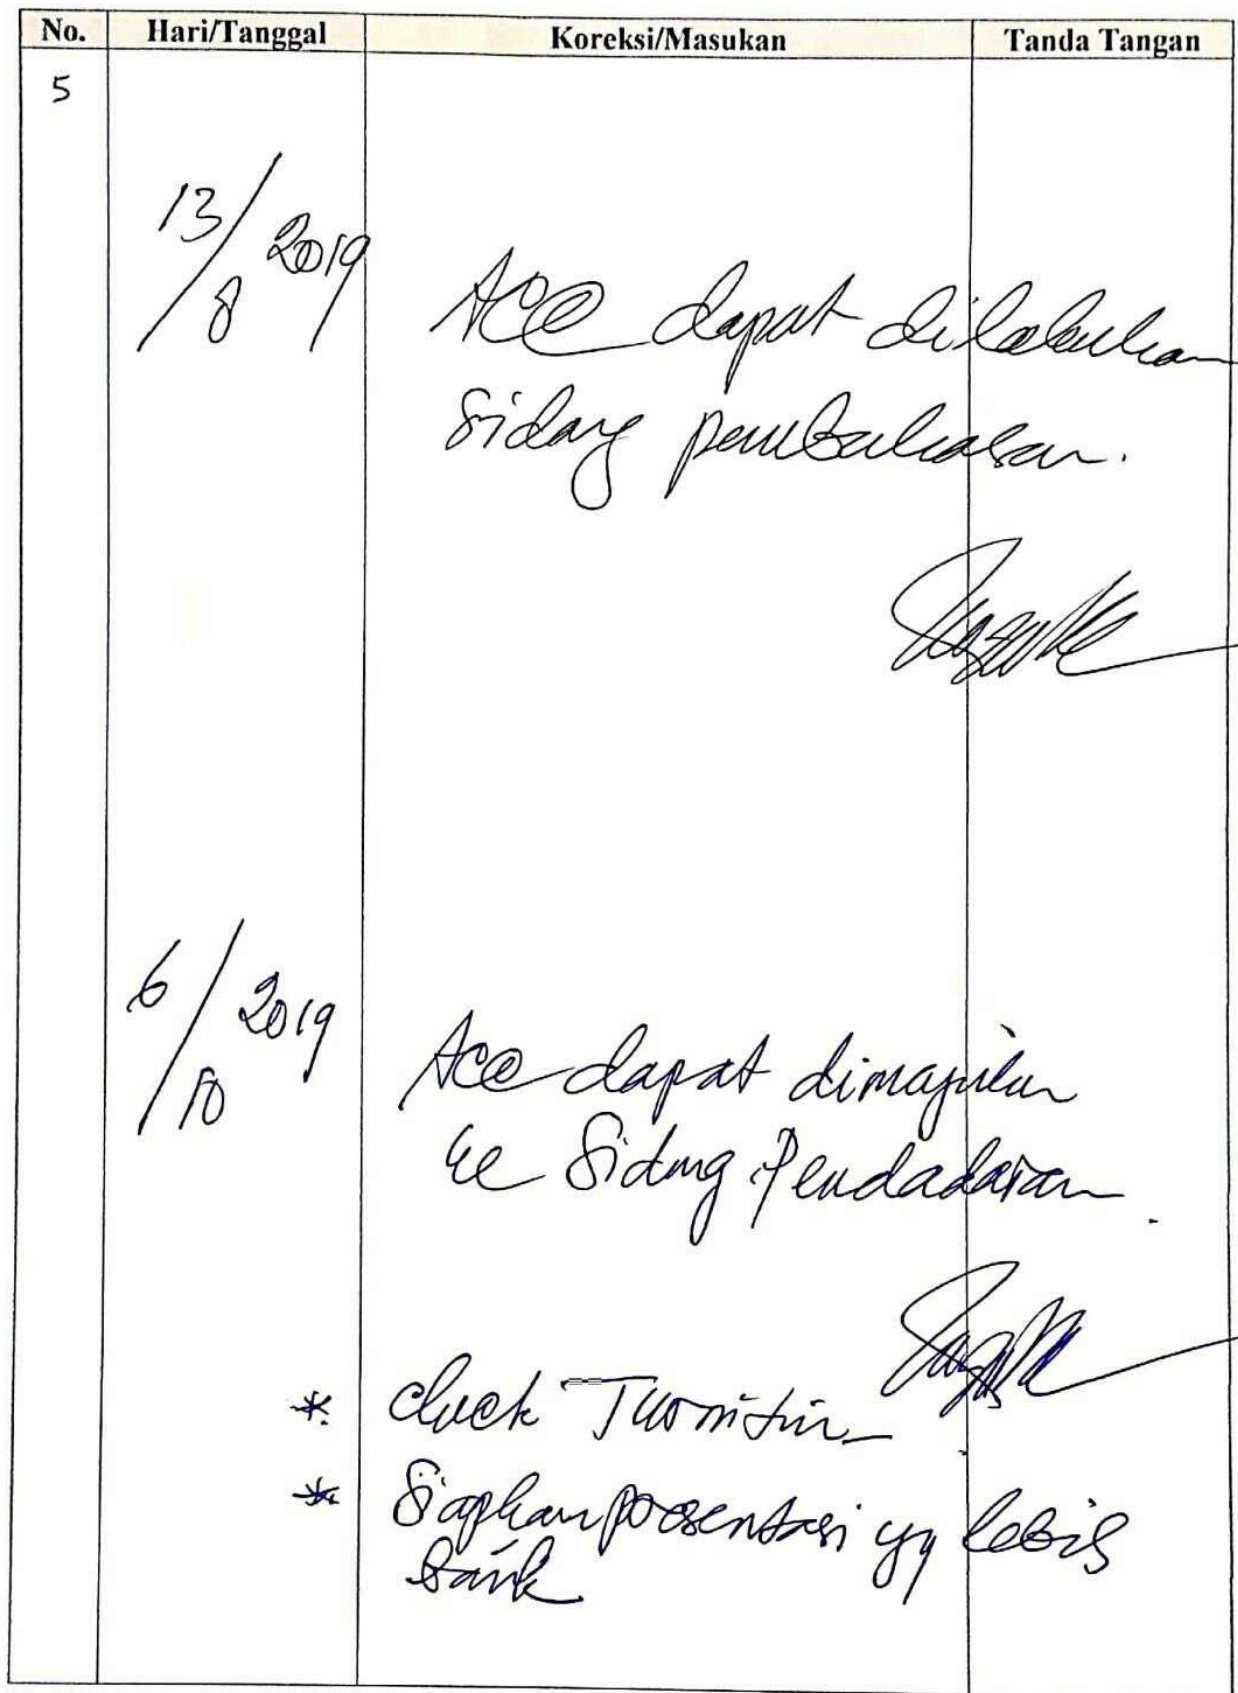 No. Hari/Tanggal Koreksi/Masukan Tanda Tangan
5
13/8 2019
Acc dapat dilakukan
Sidang pembahasan.
6/10 2019
Acc dapat dimajukan
ke Sidang Pendadaran.
* check Turnitin
* Siapkan presentasi yg lebih
baik